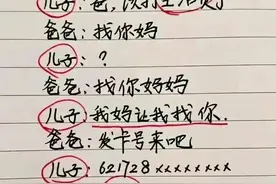 儿子:爸,没打生活费了
爸爸:找你妈
儿子:?
爸爸:找你妈妈
儿子:我妈让我找你.
爸爸:发卡号来吧
儿子:621728xxxxxxxx